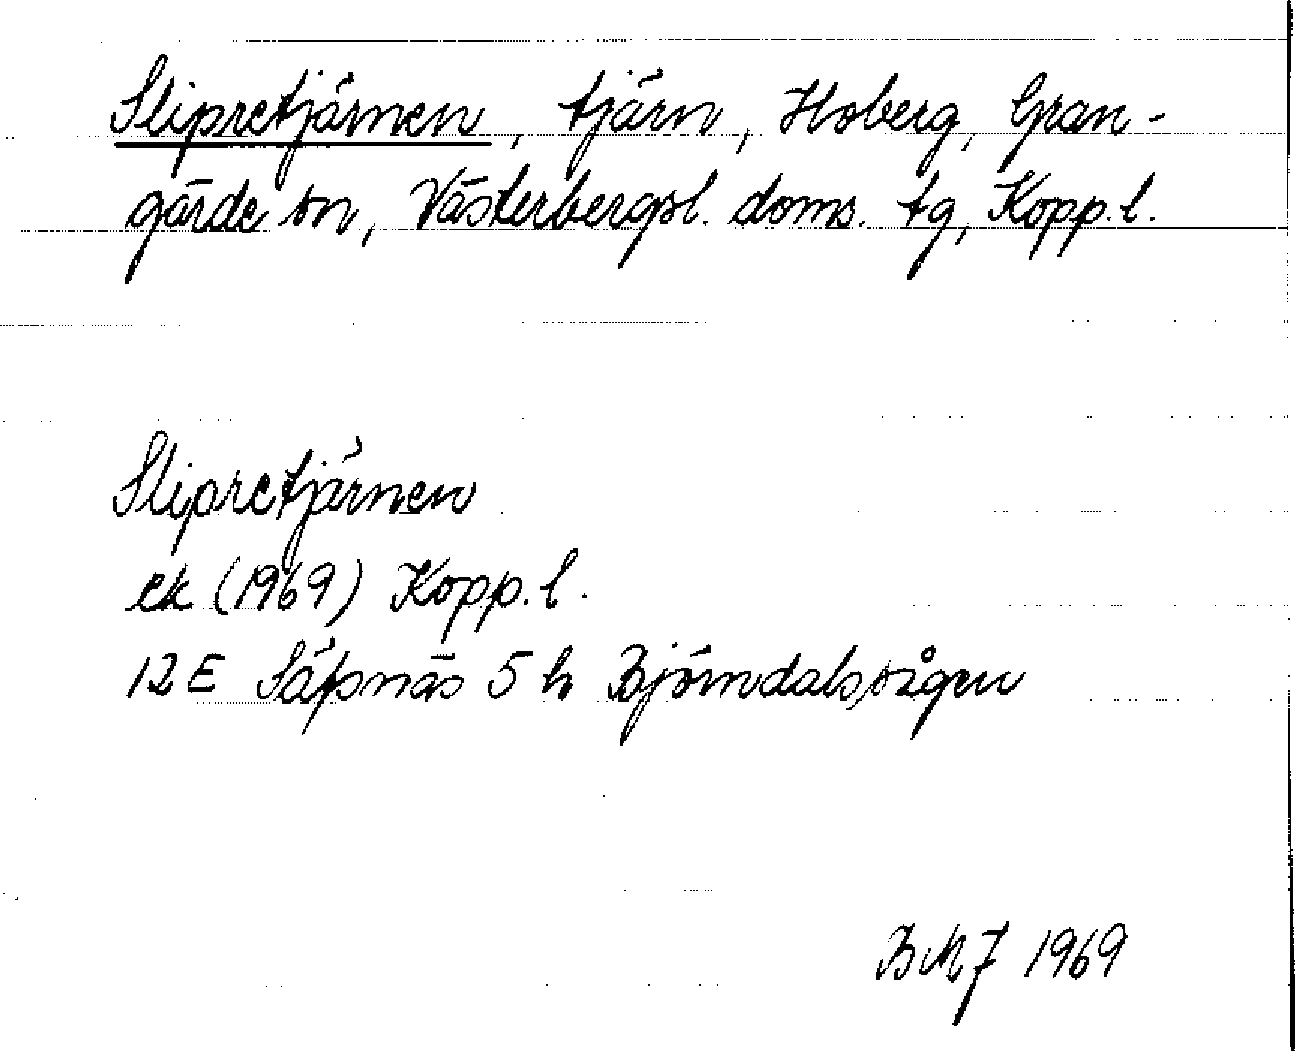 Slipretjärnen, tjärn, Hoberg, Gran-
gärde sn, Västerbergsl. doms. tg, Kopp.l.
Slipretjärnen
ek (1969) Kopp.l.
12E Säfsnäs 5 h Björndalssågen
BMJ 1969